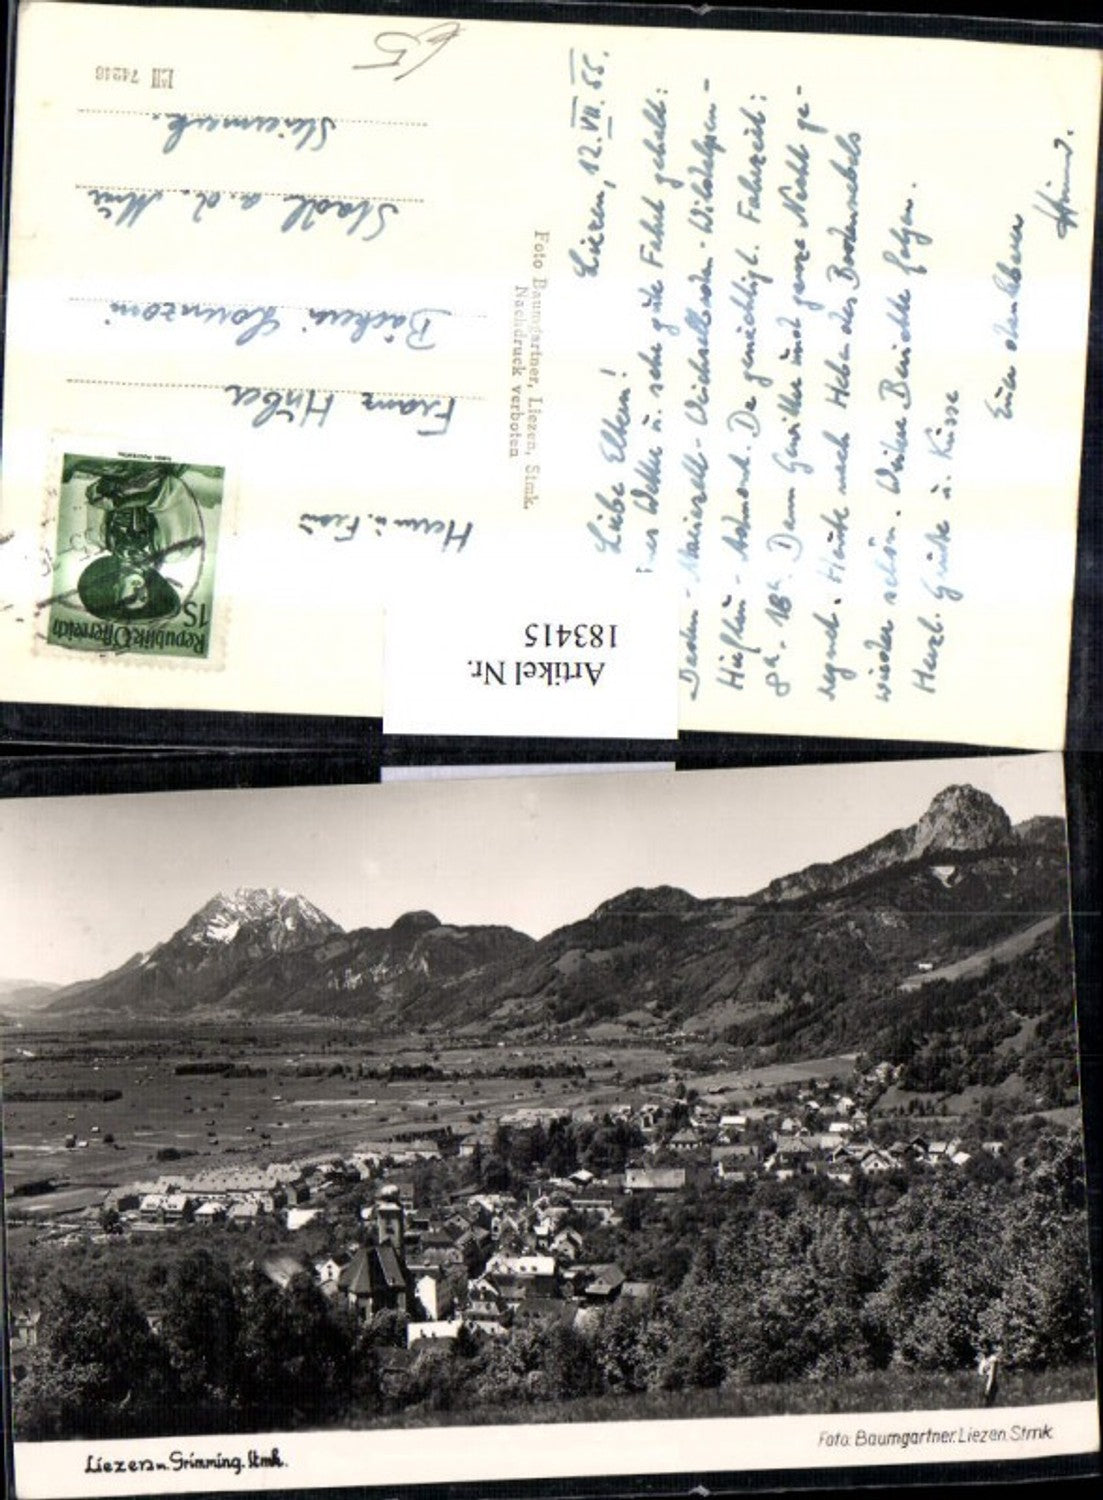 Liezen, 12.VII.55.
Liebe Eltern!
Wetter u. sehr gute Fahrt gehabt:
Mariazell - Weichselboden - Wildalpen -
Hieflau - Admont. Da gemächlich. Fahrzeit:
8h - 18h. Dann Gewitter und ganze Nacht ge-
regnet. Heute nach Heben des Bodennebels
wieder schön. Weitere Berichte folgen.
Herzl. Grüße u. Küsse
Euer dankbarer
Herrn u. Frau
Franz Huber
Bäckerei
Stadl a.d. Mur
Steiermark.
€5
LzII 74216
Foto Baumgartner, Liezen, Stmk.
Nachdruck verboten
Republik Österreich
1S
Artikel Nr.
183415
Liezen m. Grimming. Stmk.
Foto: Baumgartner. Liezen. Stmk